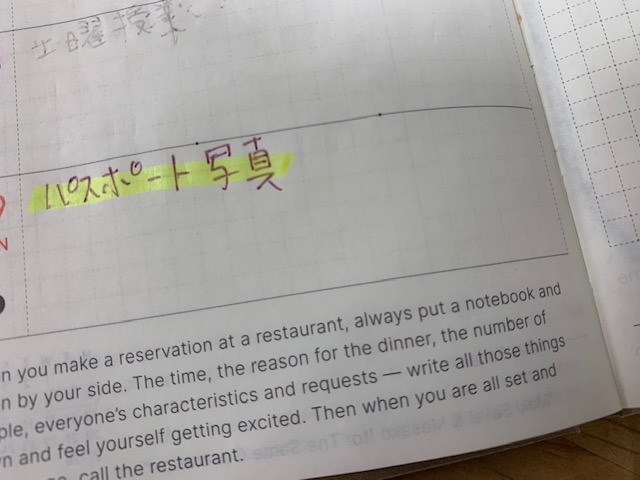 土曜授業
パスポート写真
n you make a reservation at a restaurant, always put a notebook and
n by your side. The time, the reason for the dinner, the number of
ple, everyone's characteristics and requests — write all those things
n and feel yourself getting excited. Then when you are all set and
call the restaurant.